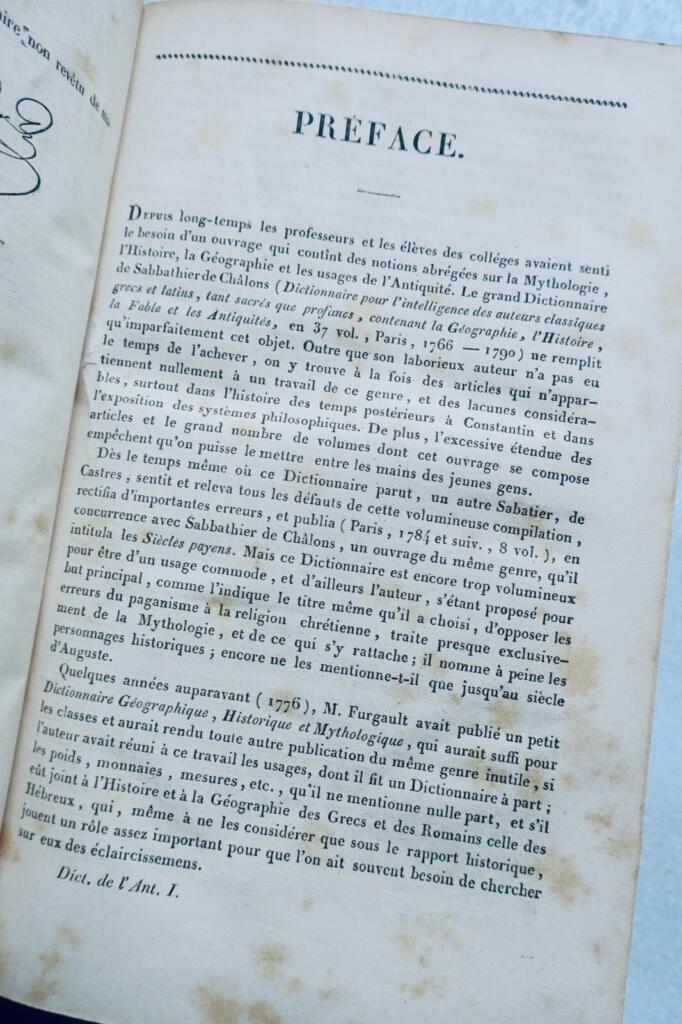 ire non revêtu de ma
PRÉFACE.
Depuis long-temps les professeurs et les élèves des colléges avaient senti
le besoin d'un ouvrage qui contînt des notions abrégées sur la Mythologie,
l'Histoire, la Géographie et les usages de l'Antiquité. Le grand Dictionnaire
de Sabbathier de Châlons (Dictionnaire pour l'intelligence des auteurs classiques
grecs et latins, tant sacrés que profanes, contenant la Géographie, l'Histoire,
la Fable et les Antiquités, en 37 vol., Paris, 1766 — 1790) ne remplit
qu'imparfaitement cet objet. Outre que son laborieux auteur n'a pas eu
le temps de l'achever, on y trouve à la fois des articles qui n'appar-
tiennent nullement à un travail de ce genre, et des lacunes considéra-
bles, surtout dans l'histoire des temps postérieurs à Constantin et dans
l'exposition des systèmes philosophiques. De plus, l'excessive étendue des
articles et le grand nombre de volumes dont cet ouvrage se compose
empêchent qu'on puisse le mettre entre les mains des jeunes gens.
Dès le temps même où ce Dictionnaire parut, un autre Sabatier, de
Castres, sentit et releva tous les défauts de cette volumineuse compilation,
rectifia d'importantes erreurs, et publia (Paris, 1784 et suiv., 8 vol.), en
concurrence avec Sabbathier de Châlons, un ouvrage du même genre, qu'il
intitula les Siècles payens. Mais ce Dictionnaire est encore trop volumineux
pour être d'un usage commode, et d'ailleurs l'auteur, s'étant proposé pour
but principal, comme l'indique le titre même qu'il a choisi, d'opposer les
erreurs du paganisme à la religion chrétienne, traite presque exclusive-
ment de la Mythologie, et de ce qui s'y rattache; il nomme à peine les
personnages historiques; encore ne les mentionne-t-il que jusqu'au siècle
d'Auguste.
Quelques années auparavant (1776), M. Furgault avait publié un petit
Dictionnaire Géographique, Historique et Mythologique, qui aurait suffi pour
les classes et aurait rendu toute autre publication du même genre inutile, si
l'auteur avait réuni à ce travail les usages, dont il fit un Dictionnaire à part;
les poids, monnaies, mesures, etc., qu'il ne mentionne nulle part, et s'il
eût joint à l'Histoire et à la Géographie des Grecs et des Romains celle des
Hébreux, qui, même à ne les considérer que sous le rapport historique,
jouent un rôle assez important pour que l'on ait souvent besoin de chercher
sur eux des éclaircissemens.
Dict. de l'Ant. I.